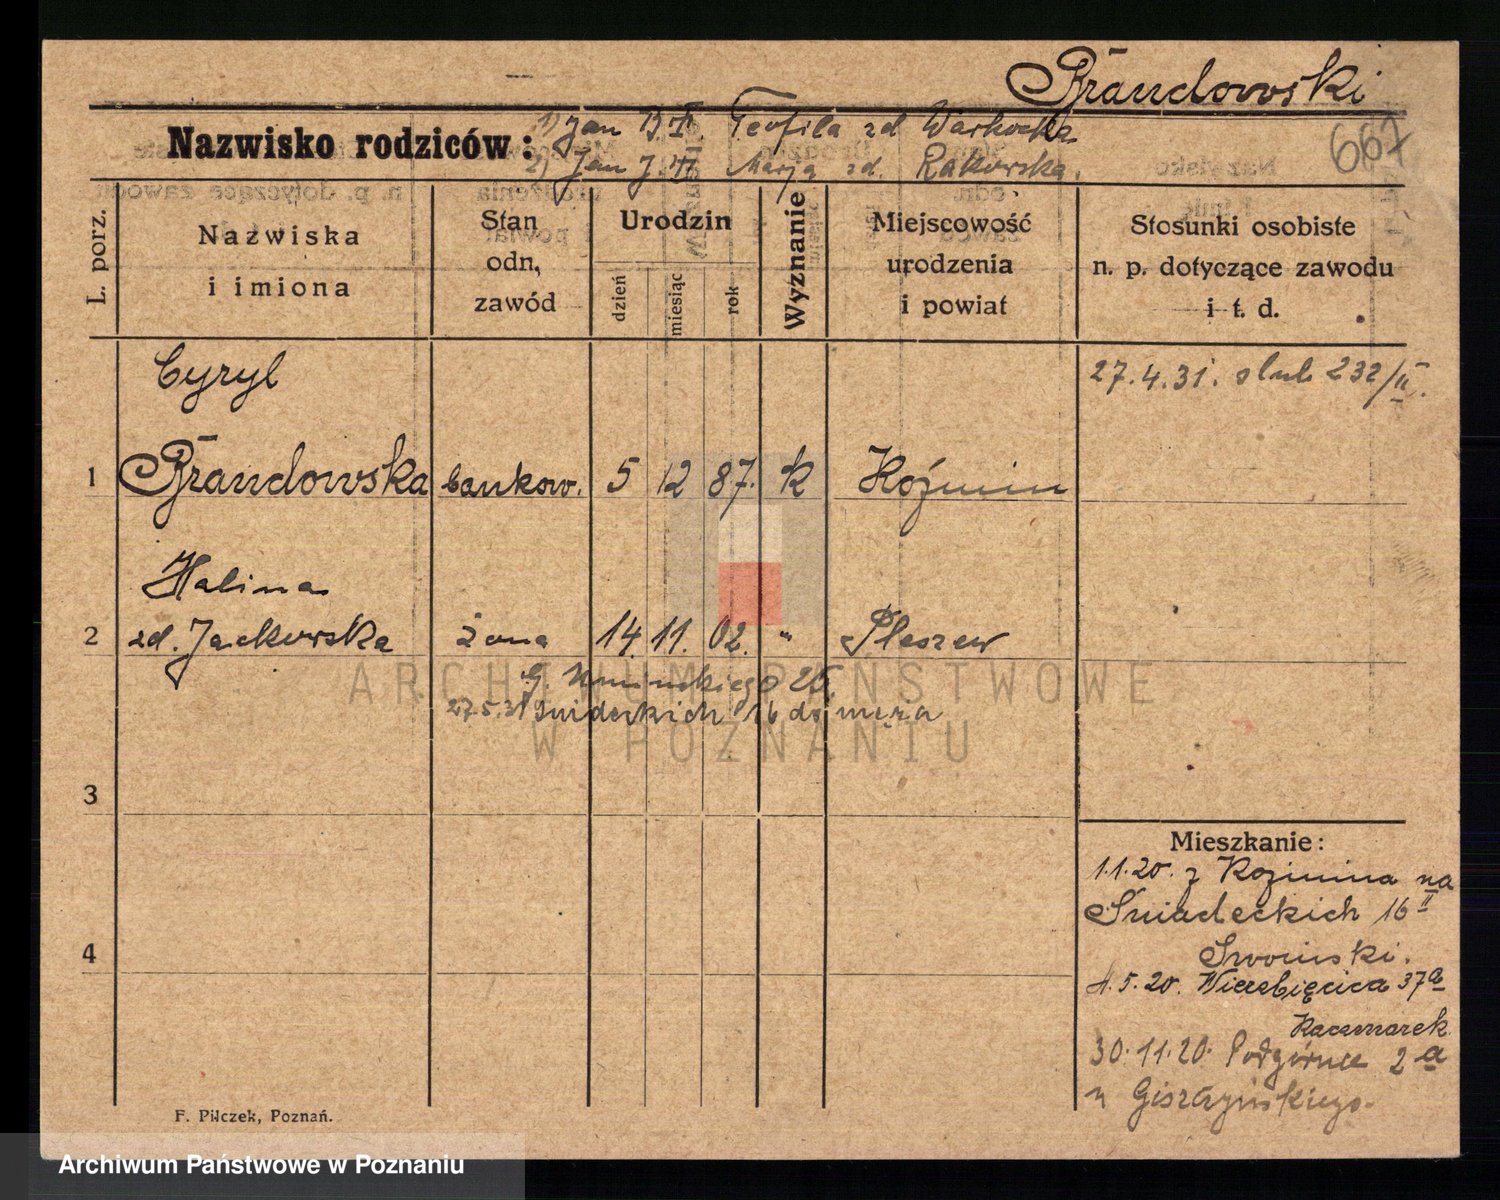 Brandowski
667
Nazwisko rodziców:
1) Jan B. Teofila zd Warkocka
2) Jan J. Marja zd. Rakowska.
L. porz.
Nazwiska
i imiona
Stan
odn,
zawód
Urodzin
dzień
miesiąc
rok
Wyznanie
Miejscowość
urodzenia
i powiat
Stosunki osobiste
n. p. dotyczące zawodu
i t. d.
Cyryl
27.4.31. slub 232/II.
1 Brandowska bankow. 5 12 87. k Koźmin
Halina
2 zd. Jackowska żona 14. 11. 02. " Pleszew
26
27.5.31 Śniadeckich 16 do męża
ARCHIWUM PAŃSTWOWE
W POZNANIU
3
4
Mieszkanie:
1.1.20. z Kozimina na
Śniadeckich 16 II
Swoinski.
4.5.20. Wierzbięcica 37a
Kaczmarek
30.11.20. Podgórna 2a
u
F. Pilczek, Poznań.
Archiwum Państwowe w Poznaniu